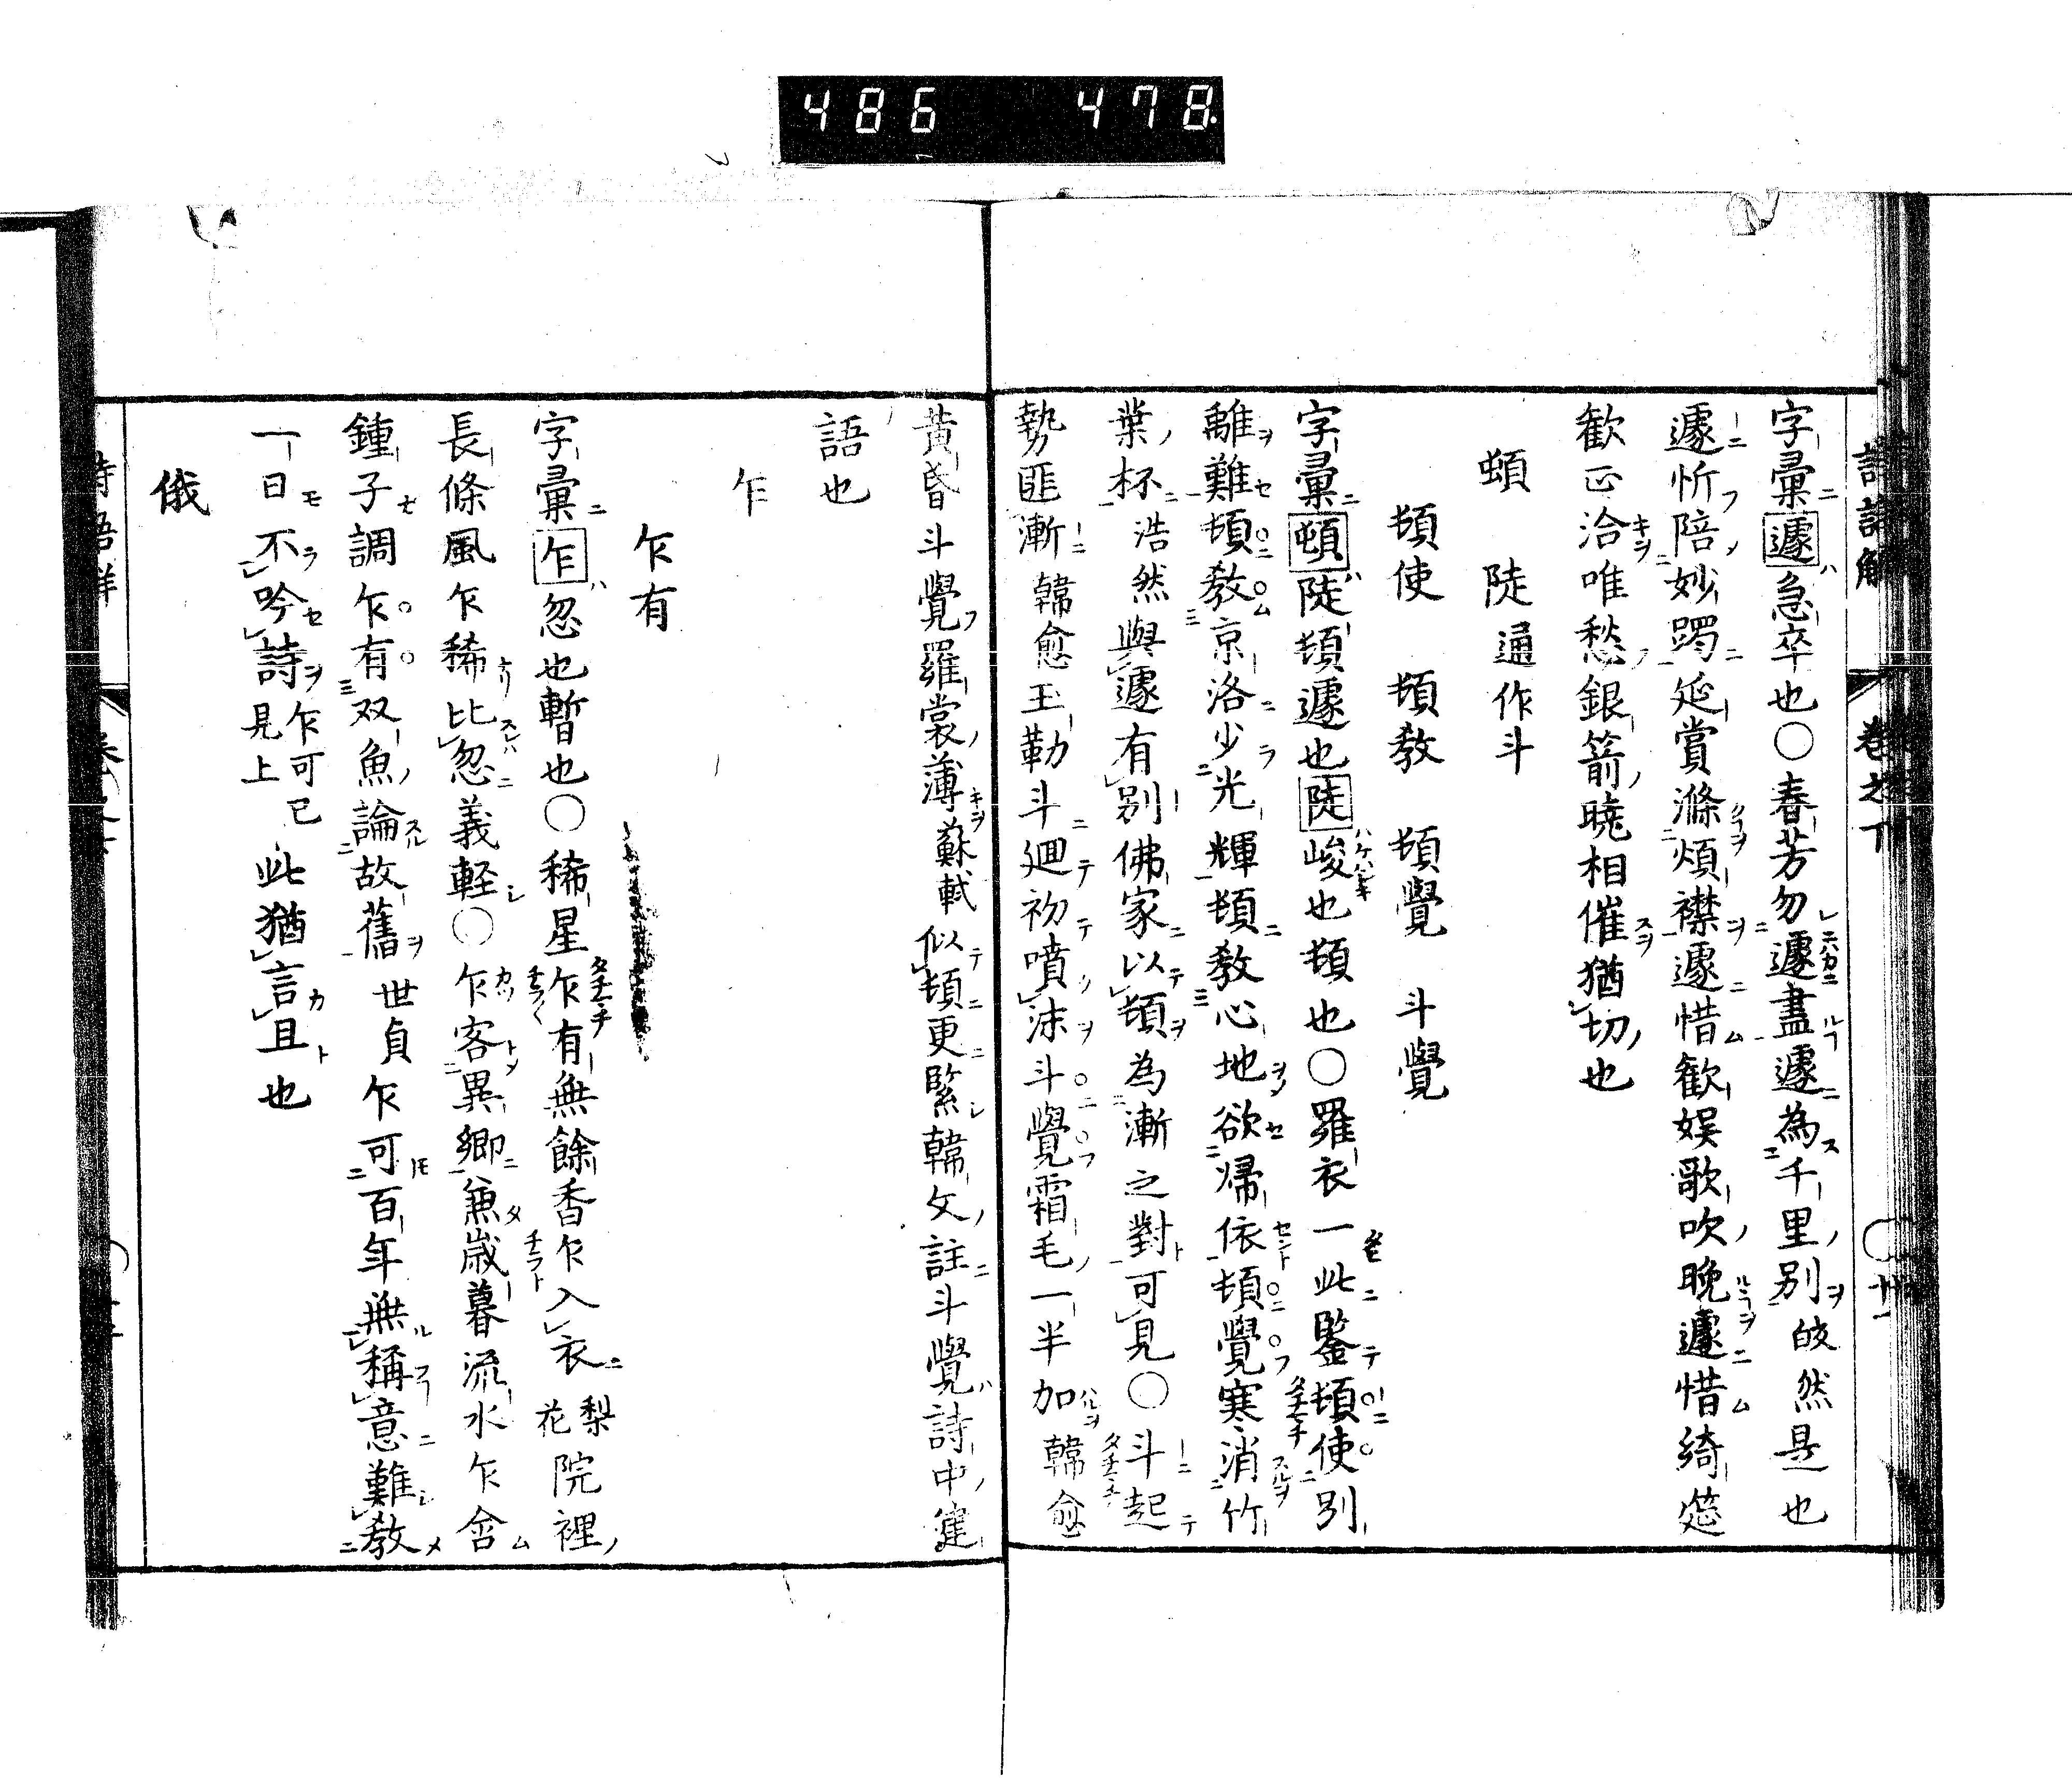 486 478
詩語解 卷之下
字彙遽急卒也○春芳勿遽盡遽為千里別皎然是也
遽忻陪妙躅延賞滌煩襟遽惜歓娯歌吹晚遽惜綺筵
歓正洽唯愁銀箭曉相催猶切也
頓 陡通作斗
頓使 頓教 頓覺 斗覺
字彙頓陡頓遽也陡峻也頓也○羅衣一此鑒頓使別
離難頓教京洛少光輝頓教心地欲帰依頓覺寒消竹
葉杯浩然與遽有別佛家以頓為漸之對可見○斗起
勢匪漸韓愈玉勒斗廻初噴沫斗覺霜毛一半加韓愈
黃昏斗覺羅裳薄蘇軾似頓更緊韓文註斗覺詩中健
語也
乍
乍有
字彙乍忽也暫也○稀星乍有無餘香乍入衣梨花院裡
長條風乍稀比忽義軽○乍客異鄉兼歳暮流水乍含
鍾子調乍有双魚論故舊世貞乍可百年無稱意難教
一日不吟詩乍可已見上此猶言且也
俄